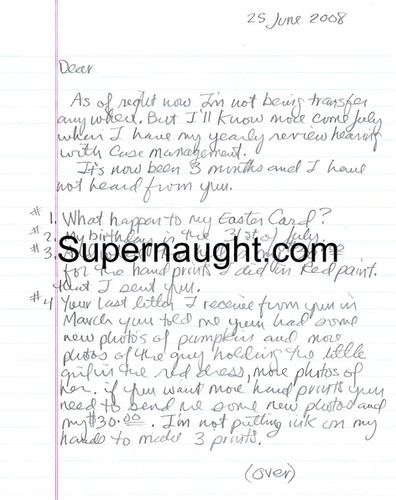 25 June 2008
Dear
As of right now I'm not being transfer
any where. But I'll know more come July
when I have my yearly review hearing
with Case management.
It's now been 3 months and I have
not heard from you.
# 1. What happen to my Easter Card?
# 2. My birthday is the 31st of July.
Supernaught.com
# 3.
for the hand prints I did in Red paint.
that I sent you.
# 4 Your last letter I receive from you in
March you told me you had some
new photos of pumpkin and more
photos of the guy holding the little
girl in the red dress, more photos of
her. if you want more hand prints you
need to send me some new photos and
my $30.00. I'm not putting ink on my
hands to make 3 prints.
(over)